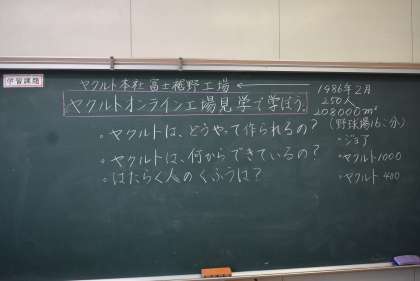 学習課題
ヤクルト本社富士裾野工場 ←
ヤクルトオンライン工場見学で学ぼう。
・ヤクルトは、どうやって作られるの?
・ヤクルトは、何からできているの?
・はたらく人のくふうは?
1986年2月
250人
208000m²
(野球場16こ分)
・ジョア
・ヤクルト1000
・ヤクルト400